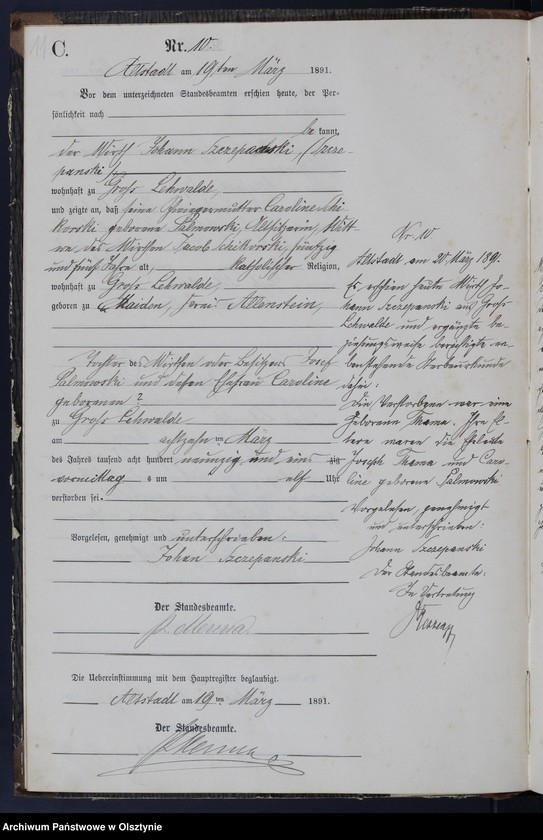 C.
Nr. 10.
Altstadt am 19ten März 1891.
Vor dem unterzeichneten Standesbeamten erschien heute, der Per-
sönlichkeit nach
be kannt,
der Wirth Johann Szczepanski, (Szcze-
panski)
wohnhaft zu Groß Lehwalde,
und zeigte an, daß seine Schwiegermutter Caroline Schi-
korski geborene Palmowski, Altsitzerin, Witt-
we des Wirthen Jacob Schikorski, fünfzig
und fünf Jahre alt, katholischer Religion,
wohnhaft zu Groß Lehwalde,
geboren zu Maiden, Kreis Allenstein,
Tochter des Wirthen oder Besitzers Josef
Palmowski und dessen Ehefrau Caroline
geborenen ?
zu Groß Lehwalde
am achtzehn ten März
des Jahres tausend acht hundert neunzig und eins zig
vormittag s um elf Uhr
verstorben sei.
Vorgelesen, genehmigt und unterschrieben:
Johan Szczepanski
Der Standesbeamte.
Die Uebereinstimmung mit dem Hauptregister beglaubigt.
Altstadt am 19ten März 1891.
Der Standesbeamte.
Nr. 10
Altstadt am 20. März 1891.
Es erschien heute Wirth Jo-
hann Szczepanski aus Groß
Lehwalde und ergänzte be-
ziehungsweise berichtigte ne-
benstehende Sterbeurkunde
dahin:
Die Verstorbene war eine
geborene Thama. Ihre El-
tern waren die Eheleute
Joseph Thama und Caro-
line geborene Palmowski
Vorgelesen, genehmigt
und unterschrieben:
Johann Szczepanski
Der Standesbeamte.
In Vertretung
Archiwum Państwowe w Olsztynie